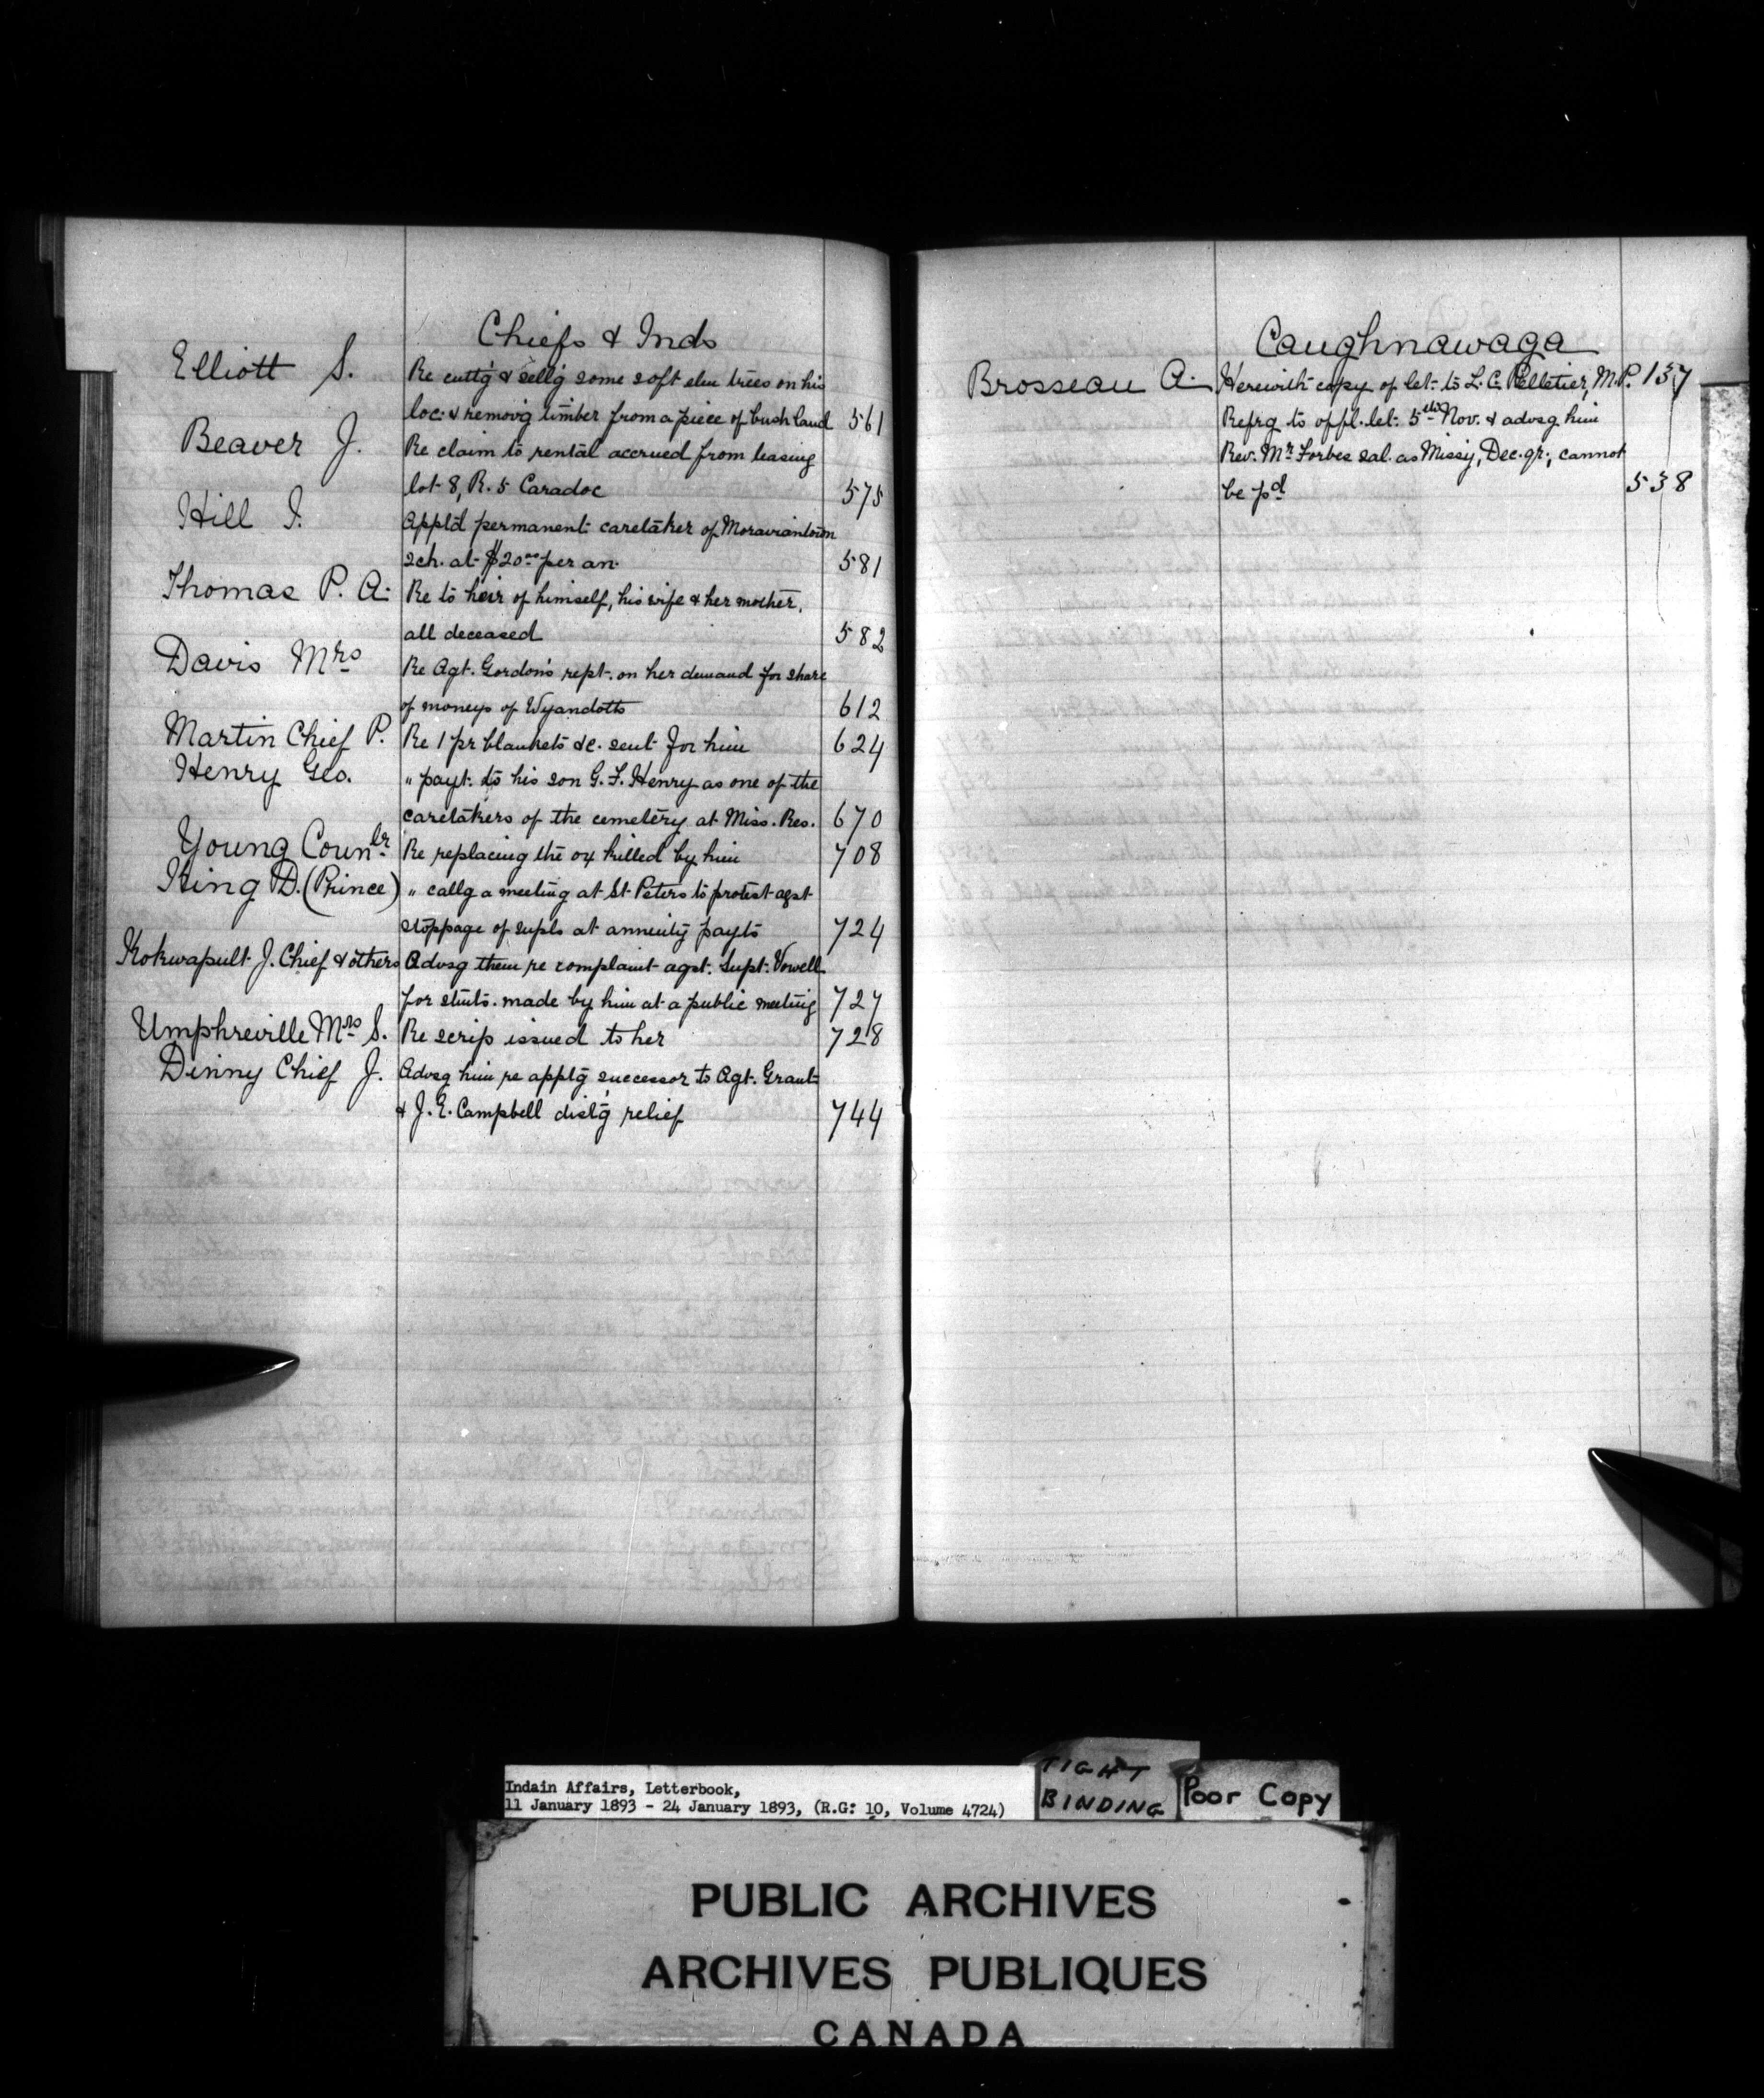 Chiefs & Inds
Elliott S. Re cuttg & sellg some soft elm trees on his
loc: & removg timber from a piece of bush land 561
Beaver J. Re claim to rental accrued from leasing
lot 8, R. 5 Caradoc 575
Hill I. Apptd permanent caretaker of Moraviantown
Sch. at $20.00 per an. 581
Thomas P. A. Re to heir of himself, his wife & her mother,
all deceased 582
Davis Mrs Re Agt. Gordon's rept. on her demand for share
of moneys of Wyandotts 612
Martin Chief P. Re 1 pr blankets &c. sent for him 624
Henry Geo. " payt. to his son G. F. Henry as one of the
caretakers of the cemetery at Miss. Res. 670
Young Counlr Re replacing the ox killed by him 708
King D. (Prince) " callg a meeting at St Peters to protest agst
stoppage of supls at annuity payts 724
Kokwapult J. Chief & others Advsg them re complaint agst. Supt. Vowell
for stmts. made by him at a public meeting 727
Umphreville Mrs S. Re scrip issued to her 728
Dinny Chief J. Advsg him re apptg successor to Agt. Grant
& J. E. Campbell distg relief 744
Caughnawaga
Brosseau A. Herewith copy of let. to L. C. Pelletier, M.P. 137
Refrg to offl. let. 5th Nov. & advsg him
Rev. Mr Forbes sal. as Missy, Dec. qr., cannot
be pd 538
Indain Affairs, Letterbook,
11 January 1893 - 24 January 1893, (R.G: 10, Volume 4724)
TIGHT
BINDING
Poor Copy
PUBLIC ARCHIVES
ARCHIVES PUBLIQUES
CANADA